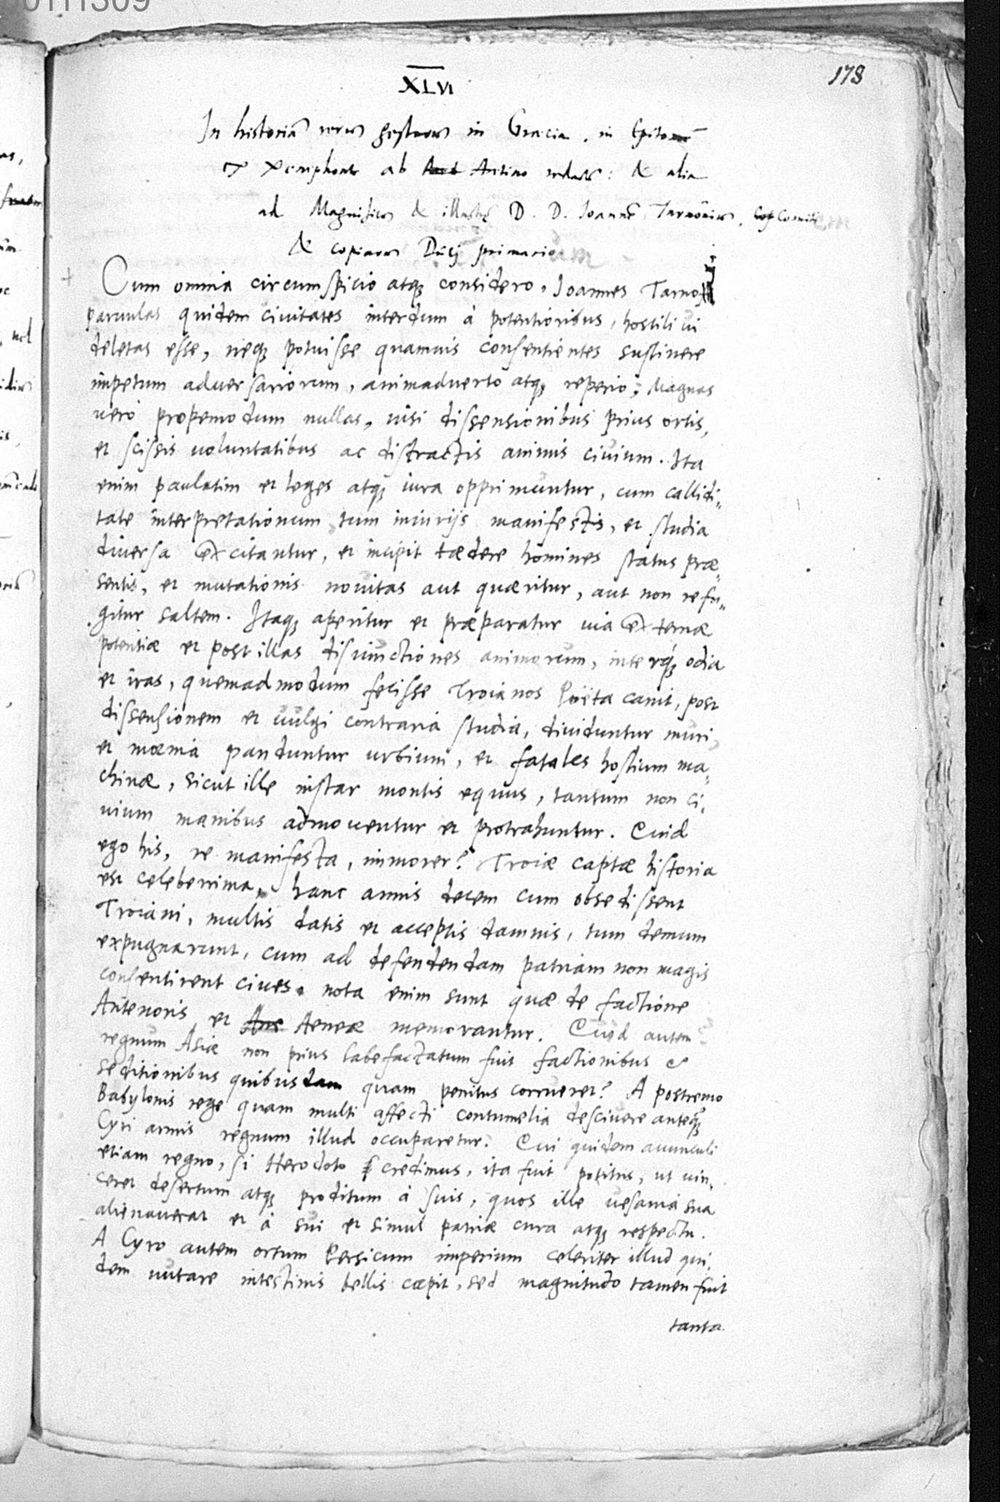 178
XLVI
In historiā rerum gestarum in Graecia. in Epitomē
ab Aritino redactā: & alia
ad Magnificum & illustrē D. D. Joannē Tarnōium,
& copiarum Ducē primarium
Cum omnia circumspicio atq, considero, Joannes Tarnoui
paruulas quidem ciuitates interdum à potentioribus, hostili ui
deletas esse, neq, potuisse quamuis consentientes sustinere
impetum aduersariorum, animaduerto atq, reperio; Magnas
uero propemodum nullas, nisi dissensionibus prius ortis,
et scissis uoluntatibus ac distractis animis ciuium. Ita
enim paulatim et leges atq, iura opprimuntur, cum callidi-
tate interpretationum tum iniurijs manifestis, et studia
diuersa excitantur, et incipit taedere homines status prae-
sentis, et mutationis nouitas aut quaeritur, aut non refu-
gitur saltem. Itaq, aperitur et praeparatur uia externae
potentiae et post illas disiunctiones animorum, interq, odia
et iras, quemadmodum fecisse Troianos Poëta canit, post
dissensionem et uulgi contraria studia, diuiduntur muri
et moenia panduntur urbium, et fatales hostium ma-
chinae, sicut ille instar montis equus, tantum non ci-
uium manibus admouentur et protrahuntur. Quid
ego his, re manifesta, immorer? Troiae captae historia
est celeberrima, hanc annis decem cum obsedissent
Troiani, multis datis et acceptis damnis, tum demum
expugnarunt, cum ad defendendam patriam non magis
consentirent ciues. nota enim sunt quae de factione
Antenoris et Aeneae memorantur. Quid autem
regnum Asiae non prius labefactatum fuit factionibus &
seditionibus quibusdam quam penitus corrueret? A postremo
Babylonis rege quam multi affecti contumelia desciuere anteq,
Cyri armis regnum illud occuparetur? Cui quidem auunculi
etiam regno, si Herodoto credimus, ita fuit potitus, ut uin-
ceret desertum atq, proditum à suis, quos ille uesania sua
alienauerat et à sui et simul patriae cura atq, respectu.
A Cyro autem ortum Persicum imperium celeriter illud qui-
dem nutare intestinis bellis caepit, sed magnitudo tamen fuit
tanta